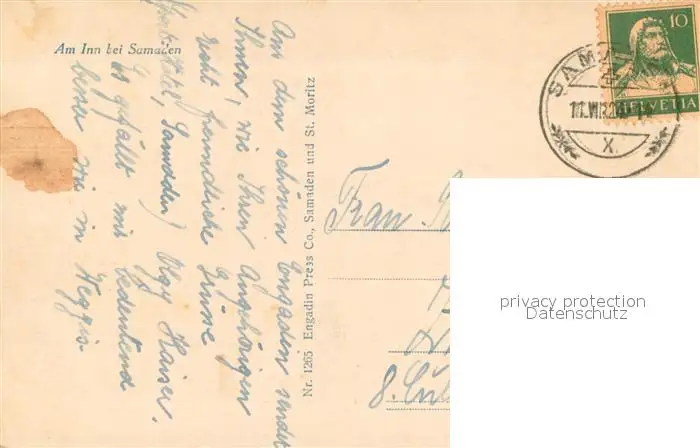 Am Inn bei Samaden
Aus dem schönen Engadin sendet
Ihnen, wie Ihren Angehörigen
recht freundliche Grüsse
Samaden) Olgy Kaiser.
Es gefällt mir bedeutend
besser wie in Weggis.
Nr. 1265 Engadin Press Co., Samaden und St. Moritz
10
HELVETIA
SAMADEN
X.
Frau
8.
privacy protection
Datenschutz